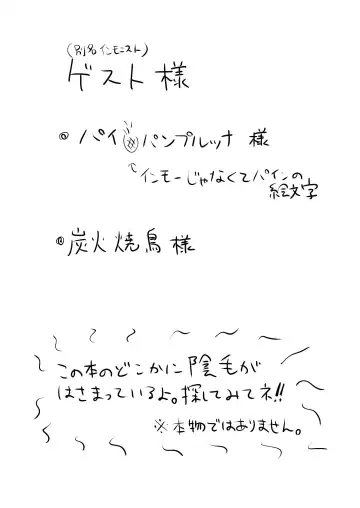 (別名インモニスト)
ゲスト様
◎パイ🍍パンプルッナ 様
インモーじゃなくてパインの
絵文字
◎炭火焼鳥様
この本のどこかに陰毛が
はさまっているよ。探してみてネ!!
※本物ではありません。